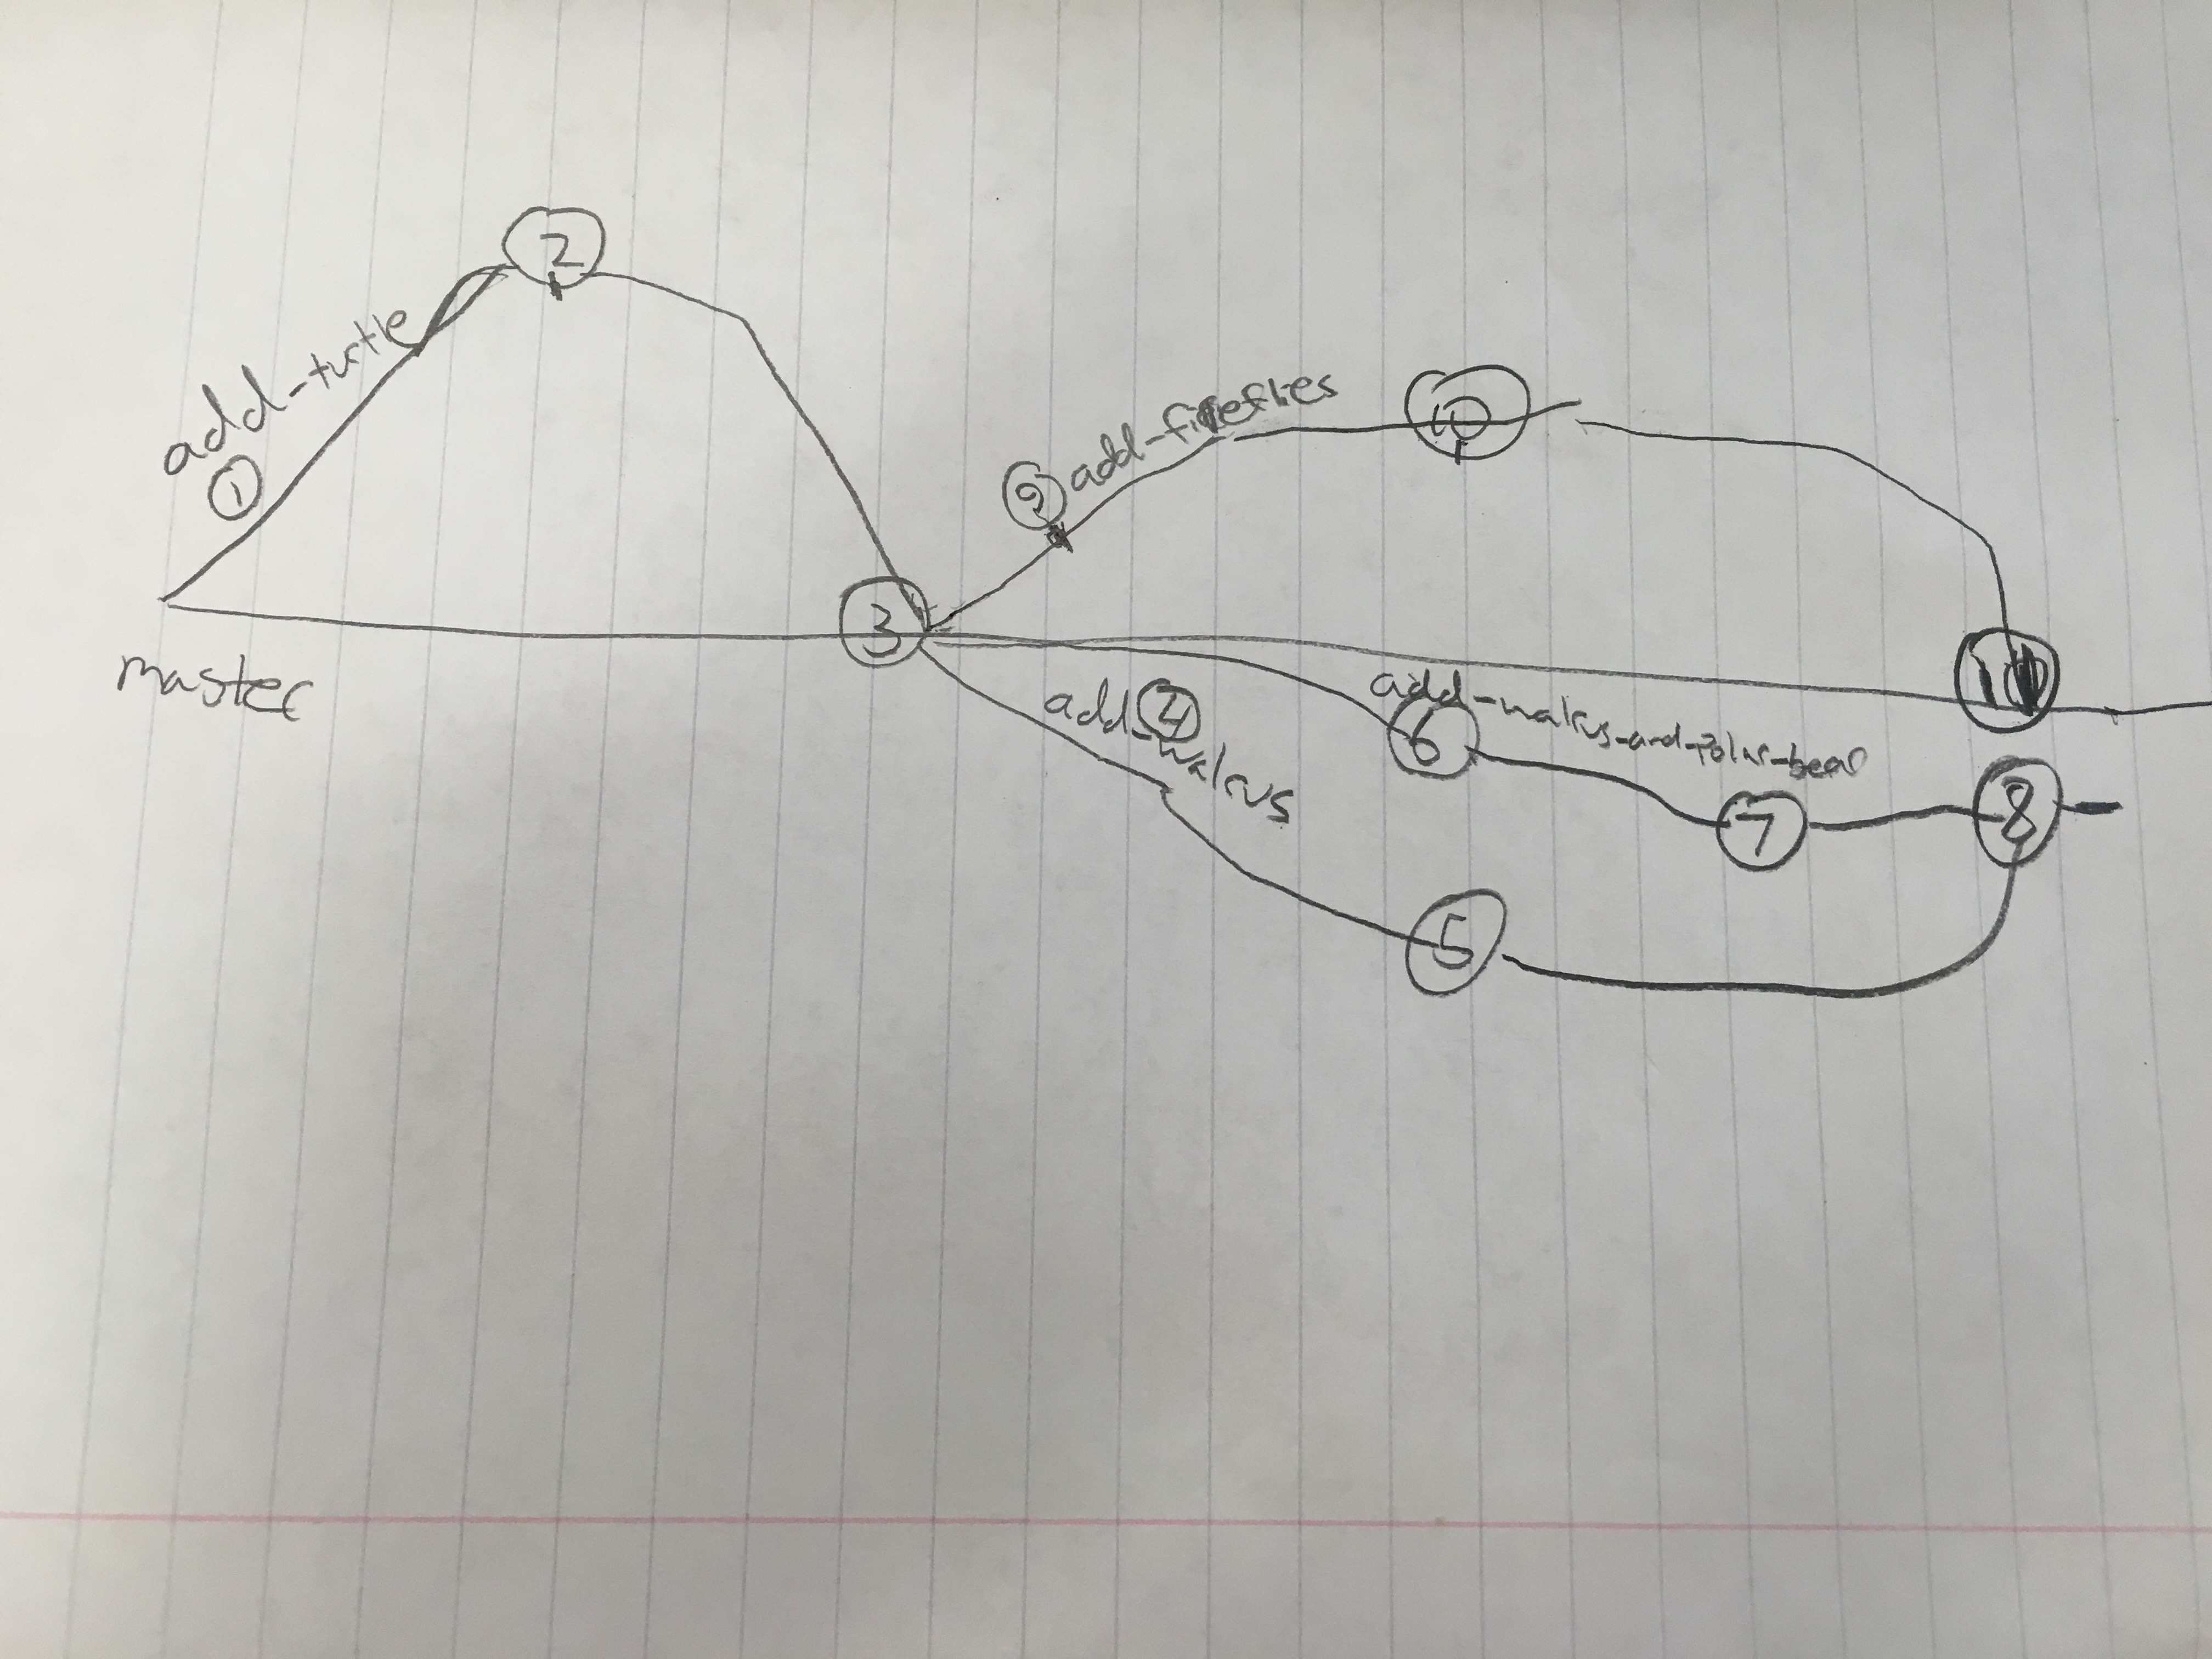 2
add-turtle
1
master
3
9 add-fireflies
10
4
add-walrus
6
add-walrus-and-polar-bear
7
8
5